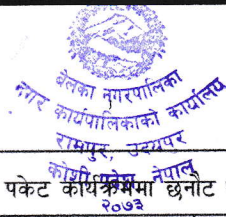 बेलका नगरपालिका
नगर कार्यपालिकाको कार्यालय
रामपुर, उदयपुर
कोशी प्रदेश, नेपाल
पकेट कार्यक्रममा छनौट
२०७३